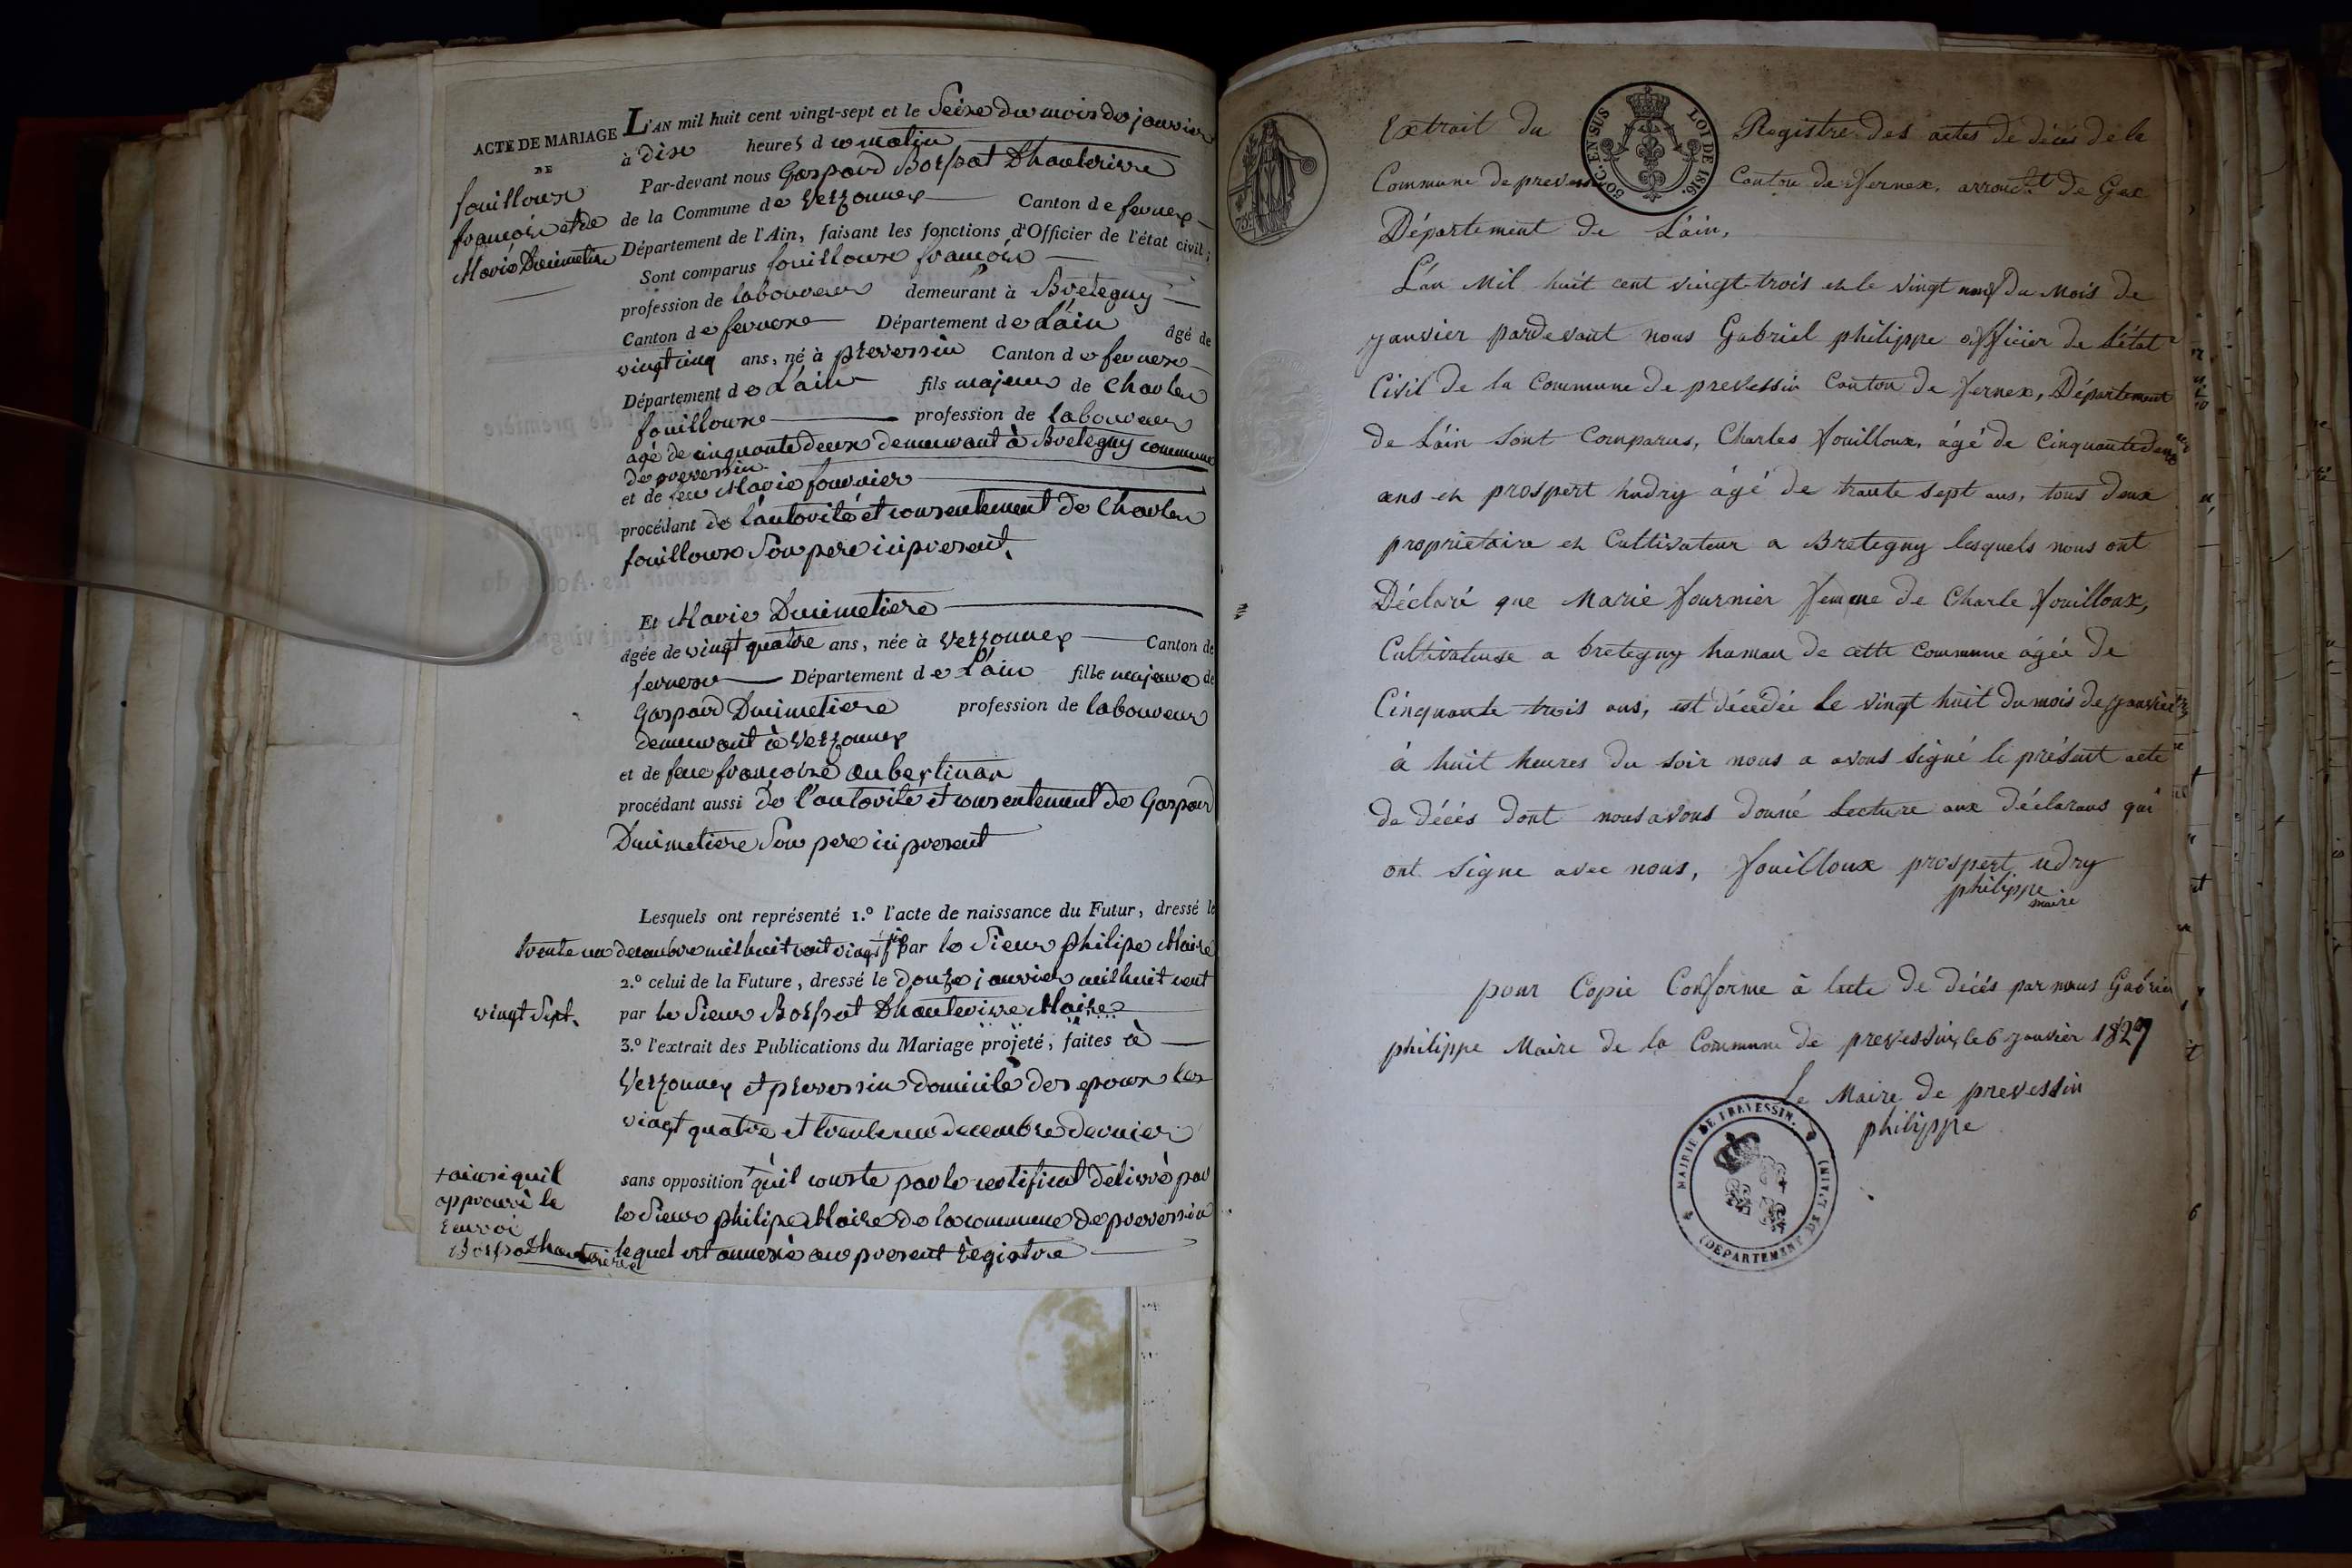 ACTE DE MARIAGE
DE
fouilloux
françois et de
Marie Ducimetiere
L'AN mil huit cent vingt-sept et le Seize du mois de janvier
à dix heures du matin
Par-devant nous Gaspard Bosson Dhauterive
de la Commune de Versonnex Canton de fernex
Département de l'Ain, faisant les fonctions d'Officier de l'état civil;
Sont comparus fouilloux françois
profession de laboureur demeurant à Bretegny
Canton de fernex Département de L'ain âgé de
vingt cinq ans, né à prevessin Canton de fernex
Département de L'ain fils majeur de Charles
fouilloux profession de laboureur
age de cinquante deux demeurant à Bretegny commune
de prevessin
et de feue Marie fournier
procédant de l'autorité et consentement de Charles
fouilloux Son pere ici present,
Et Marie Ducimetiere
âgée de vingt quatre ans, née à Versonnex Canton de
fernex Département de L'ain fille majeure de
Gaspard Ducimetiere profession de laboureur
demeurant à Versonnex
et de feue francoise
procédant aussi de l'autorité et consentement de Gaspard
Ducimetiere Son pere ici present
Lesquels ont représenté 1.° l'acte de naissance du Futur, dressé le
trente un decembre mil huit cent vingt six par le Sieur philipe Maire
2.° celui de la Future, dressé le douze janvier mil huit cent
vingt Sept. par le Sieur Dhauterive Maire
3.° l'extrait des Publications du Mariage projeté, faites à
Versonnex et prevessin domicile des epoux les
vingt quatre et trente un decembre dernier
sans opposition + qu'il conste par le certificat delivré par
le Sieur philipe Maire de la commune de prevessin
lequel est annexé au present registre
+ ainsi quil
approuvé le
renvoi
Dhauterive
Extrait du Registre des actes de décès de la
Commune de prevessin Canton de fernex, arrondt. de Gex
Département de L'ain,
50 C. EN SUS LOI DE 1816.
L'an Mil huit cent vingt-trois et le vingt neuf du Mois de
janvier pardevant nous Gabriel philippe officier de L'état
Civil de la Commune de prevessin Canton de fernex, Département
de L'ain sont Comparus, Charles fouilloux, âgé de Cinquante deux
ans et prospert hudry âgé de trante sept ans, tous deux
proprietaire et Cultivateur a Bretegny lesquels nous ont
Déclaré que Marie fournier femme de Charle fouilloux,
Cultivateuse a bretegny hamau de cette Commune âgée de
Cinquante trois ans, est décédée le vingt huit du mois de janvier
à huit heures du soir nous a avons signé le présent acte
de décés dont nous avons donné lecture aux déclarans qui
ont signe avec nous, fouilloux prospert udry
philippe
maire
pour Copie Conforme à lacte de décès par nous Gabriel
philippe Maire de la Commune de prevessin, le 6 janvier 1827
Le Maire de prevessin
philippe
MAIRIE DE PREVESSIN.
(DEPARTEMENT DE L'AIN)